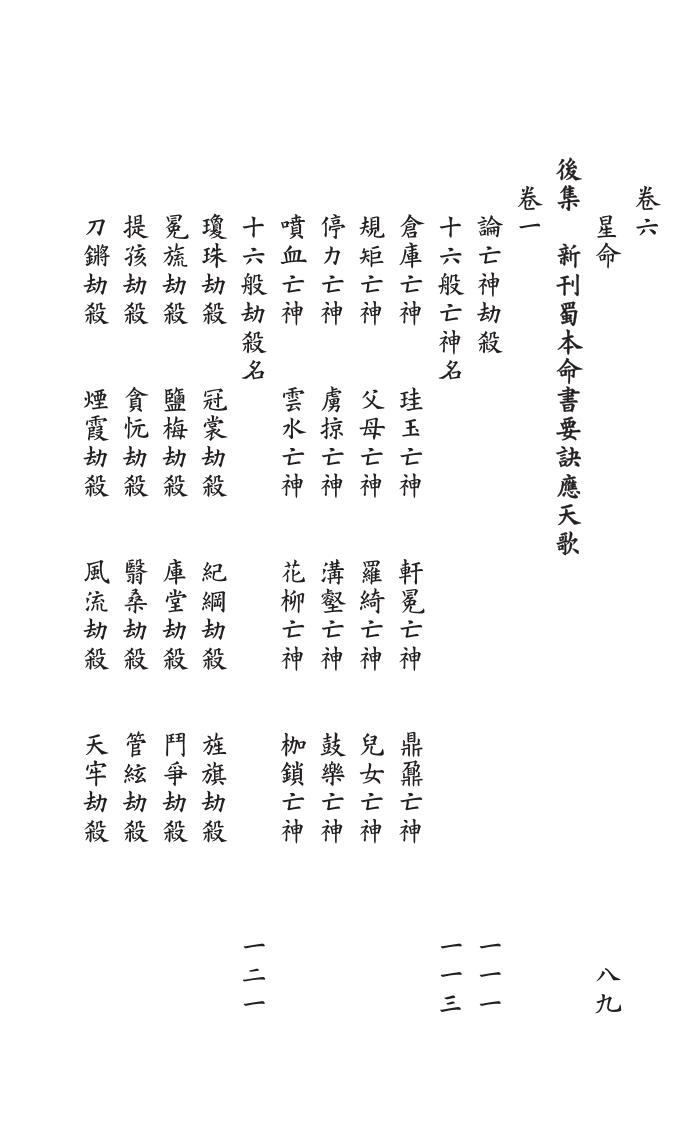 卷六
星命 八九
後集 新刊蜀本命書要訣應天歌
卷一
論亡神劫殺 一一一
十六般亡神名 一一三
倉庫亡神 珪玉亡神 軒冕亡神 鼎鼐亡神
規矩亡神 父母亡神 羅綺亡神 兒女亡神
停力亡神 虜掠亡神 溝壑亡神 鼓樂亡神
噴血亡神 雲水亡神 花柳亡神 枷鎖亡神
十六般劫殺名 一二一
瓊珠劫殺 冠裳劫殺 紀綱劫殺 旌旗劫殺
冕旒劫殺 鹽梅劫殺 庫堂劫殺 鬥爭劫殺
提孩劫殺 貪忨劫殺 翳桑劫殺 管絃劫殺
刀鏘劫殺 煙霞劫殺 風流劫殺 天牢劫殺